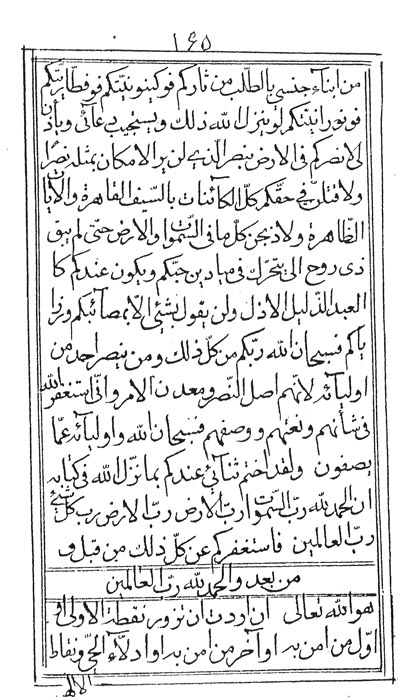 ١٦٥
من ابنآء جنسي بالطّلب من ثاركم فو كينونيّتكم فو فطاريّتكم
فو نورانيّتكم لو ينزل الله ذلك ويستجيب دعآئي ويأذن
لي لانصركم في الارض بنصر الّذي لن ير الامكان بمثله نصرًا
ولاقتلنّ في حقّكم كلّ الكآئنات بالسّيف القاهرة والآيات
الظّاهرة ولاذبحنّ كلّ ما في السّموات والارض حتى لم يبق
ذي روح الى يتحرّك في ميادين حبّكم ويكون عندكم كا
العبد الذّليل الاذلّ ولن يقول بشئي الّا بمصآئبكم ورزا
ياكم فسبحان الله ربّكم من كلّ ذلك ومن ينصر احد من
اوليآئه لانّهم اصل النّصر ومعدن الامر وانّي استغفر الله
في شأنهم ونعتهم ووصفهم فسبحان الله واوليآئه عمّا
يصفون ولقد اختم ثنآئي عندكم بما نزّل الله في كتابه
ان الحمد لله ربّ السّموات وربّ الارض ربّ الارض ربّ كلّ شيئ
ربّ العالمين فاستغفركم عن كلّ ذلك من قبل و
من بعد والحمد لله ربّ العالمين
هو الله تعالى ان اردت ان تزور نقطة الاولى او
اوّل من امن به او آخر من امن به او ادلّآء الحيّ ونقاط
الاله